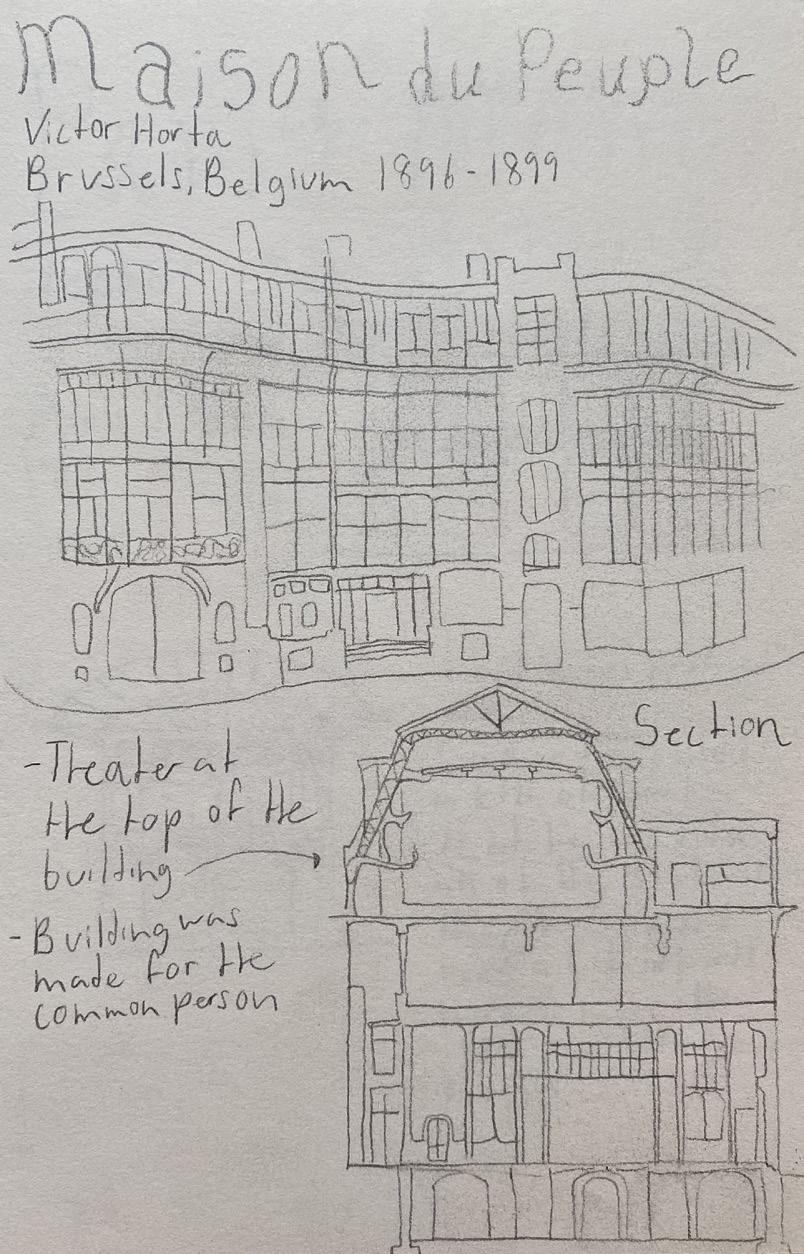 Maison du Peuple
Victor Horta
Brussels, Belgium 1896-1899
Section
-Theater at
the top of the
building
-Building was
made for the
common person